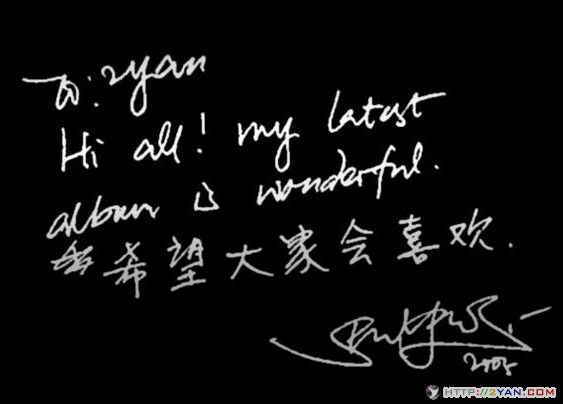 To: 2yan
Hi all! my latest
album is wonderful.
希望大家会喜欢.
2005
HTTP://2YAN.COM